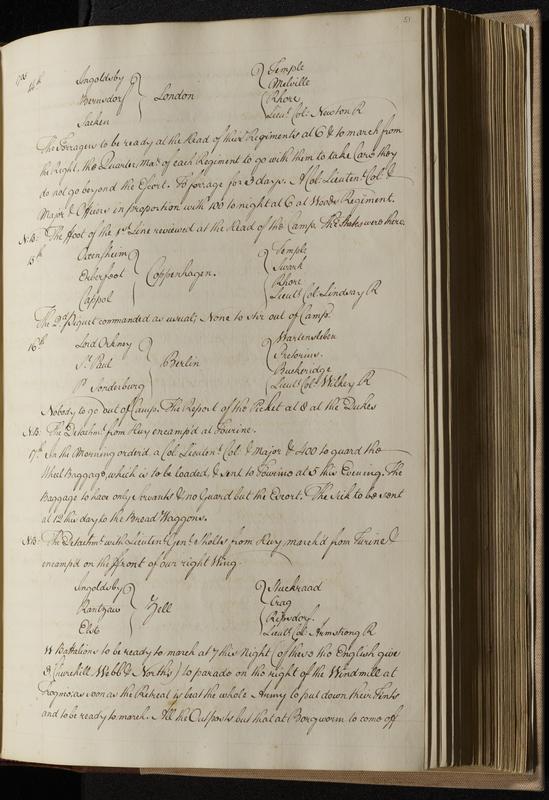 51
1705
14th Ingoldsby } { Temple
Bernsdorf } London { Melville
Sacken } { Rhore
Lieut. Col: Newton R
The Forragers to be ready at the Head of their Regiments at 6 & to march from
the Right, the Quarter Mas: of each Regiment to go with them to take Care they
do not go beyond the Escort. To forrage for 3 days. A Col: Lieutent. Col: &
Major & Officers in proportion with 100 to night at 6 at Woods Regiment.
N:B: The ffoot of the 1st Line reviewed at the Head of the Camp. The States were there.
15th Oxensheim } { Temple
Erberfoot } Coppenhagen. { Swark
Cappol } { Rhore
Lieut. Col: Lindsay R
The 2d Piquet commanded as usual; None to stir out of Camp.
16th Lord Orkney } { Wartensleben
St. Paul } Berlin { Pretorius.
Pr. Sonderburg } { Buckeridge
Lieut. Col: Withey R
Nobody to go out of Camp. The Report of the Picket at 8 at the Dukes
N:B: The Detachmt. from Huy encamp'd at Tourine.
17th In the Morning order'd a Col: Lieutent. Col: & Major & 400 to guard the
Wheel Baggage, which is to be loaded, & sent to Tourine at 5 this Evening. The
Baggage to have only servants & no Guard but the Escort. The Sick to be sent
at 12 this day to the Bread Waggons.
N:B: The Detachmt. with Lieutent. Genl. Scholtz from Huy, march'd from Turine &
encamp'd on the ffront of our right Wing.
Ingoldsby } { Stuckraad
Rantzaw } Zell { Crag
Elst } { Ripsdorf.
Lieut. Col: Armstrong R
Battalions to be ready to march at 7 this Night (of these the English give
3 Churchill, Webb & North's) to parade on the right of the Windmill at
as soon as the Retreat is beat the whole Army to put down their Tents
and to be ready to march. All the Outposts but that at Borgworm to come off